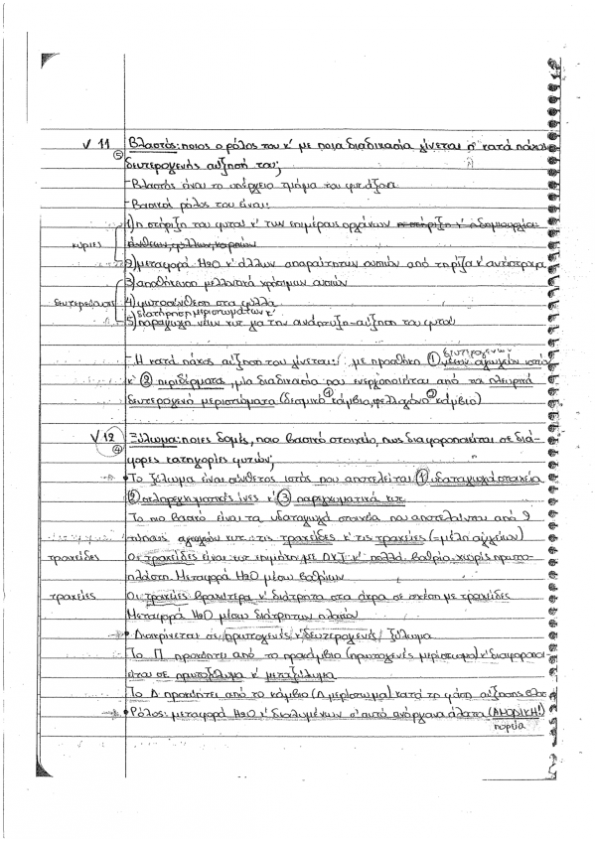 √ 11 Βλαστός: ποιος ο ρόλος του κ' με ποια διαδικασία γίνεται η κατά πάχος
⑤ δευτερογενής αύξησή του;
-Βλαστός είναι το υπέργειο τμήμα του φυτ.
-Βασικοί ρόλοι του είναι:
1) η στήριξη του φυτού κ' των εναέριων οργάνων
κύριες
2) μεταφορά H2O κ' άλλων απαραίτητων ουσιών από τη ρίζα κ' αντίστροφα
3) αποθήκευση μελλοντικά χρήσιμων ουσιών
δευτερεύουσες 4) φωτοσύνθεση στα φύλλα
διατήρηση μεριστωμάτων κ'
5) παραγωγή νέων κυτ για την ανάπτυξη-αύξηση του φυτού
δευτερογενών
-Η κατά πάχος αύξηση του γίνεται: με προσθήκη ① αγωγών ιστών
κ' ② περιδέρματος, μία διαδικασία που ενεργοποιείται από τα πλευρικά
δευτερογενή μεριστώματα (δεσμικό ① κάμβιο, φελλογόνο ② κάμβιο)
√ 12 Ξύλωμα: ποιες δομές, ποιο βασικό στοιχείο, πως διαφοροποιείται σε διά-
④ φορες κατηγορίες φυτών;
• Το ξύλωμα είναι σύνθετος ιστός που αποτελείται ① υδαταγωγά στοιχεία
② σκληρεγχυματικές ίνες κ' ③ παρεγχυματικά κυτ
Το πιο βασικό είναι τα υδαταγωγά στοιχεία που αποτελούνται από 2
τύπους αγωγών κυτ: τις τραχεΐδες κ' τις τραχείες (=μέλη αγγείων)
τραχεΐδες Οι τραχεΐδες είναι κυτ επιμήκη με ΔΚΤ κ' πολλά βοθρία, χωρίς πρωτο-
πλάστη. Μεταφορά H2O μέσω βοθρίων
τραχείες Οι τραχείες βραχύτερα κ' διάτρητα στα άκρα σε σχέση με τραχεΐδες
Μεταφορά H2O μέσω διάτρητων πλακών
• Διακρίνεται σε πρωτογενές κ' δευτερογενές ξύλωμα
Το Π προκύπτει από το προκάμβιο (πρωτογενές μερίστωμα) κ' διαφοροποι-
είται σε πρωτόξυλωμα κ' μεταξύλωμα
Το Δ προκύπτει από το κάμβιο (Δ μερίστωμα) κατά τη φάση αύξησης
• Ρόλος: μεταφορά H2O κ' διαλυμένων σ' αυτό ανόργανα άλατα (ΑΝΟΔΙΚΗ!)
πορεία